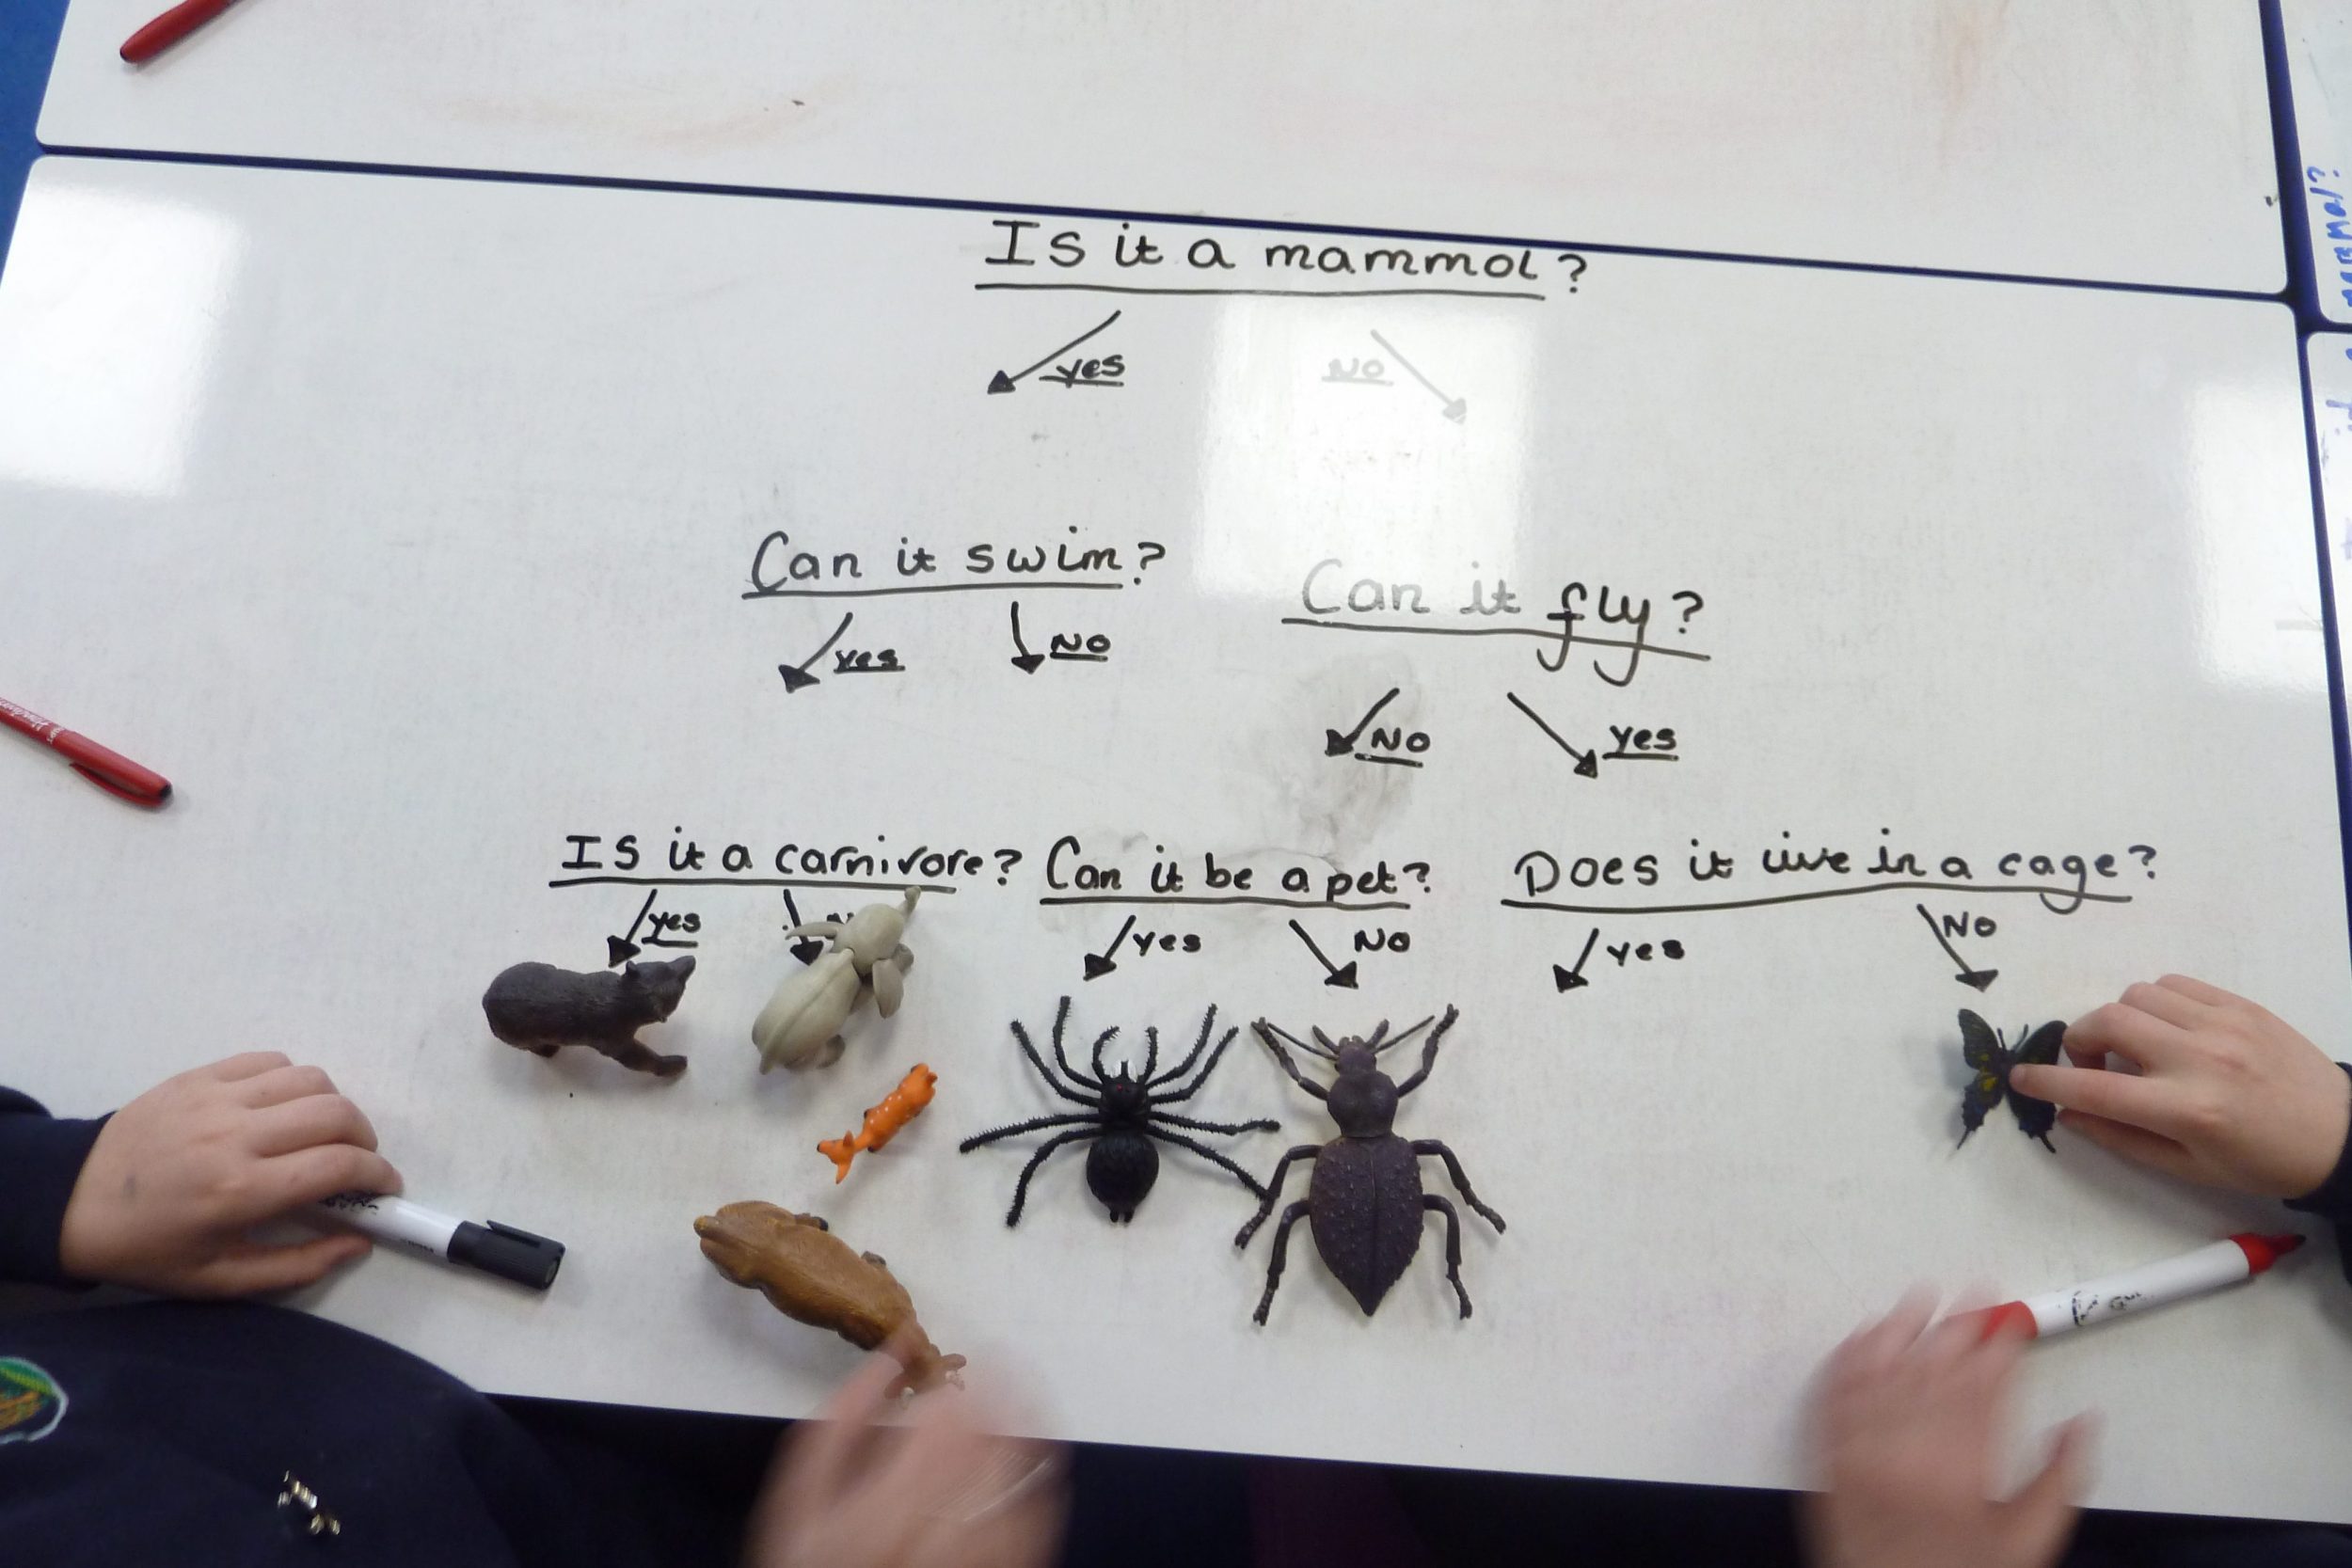 Is it a mammol?
yes
No
Can it swim?
Can it fly?
yes
No
No
yes
Is it a carnivore?
Can it be a pet?
Does it live in a cage?
yes
yes
No
yes
No
mammal?